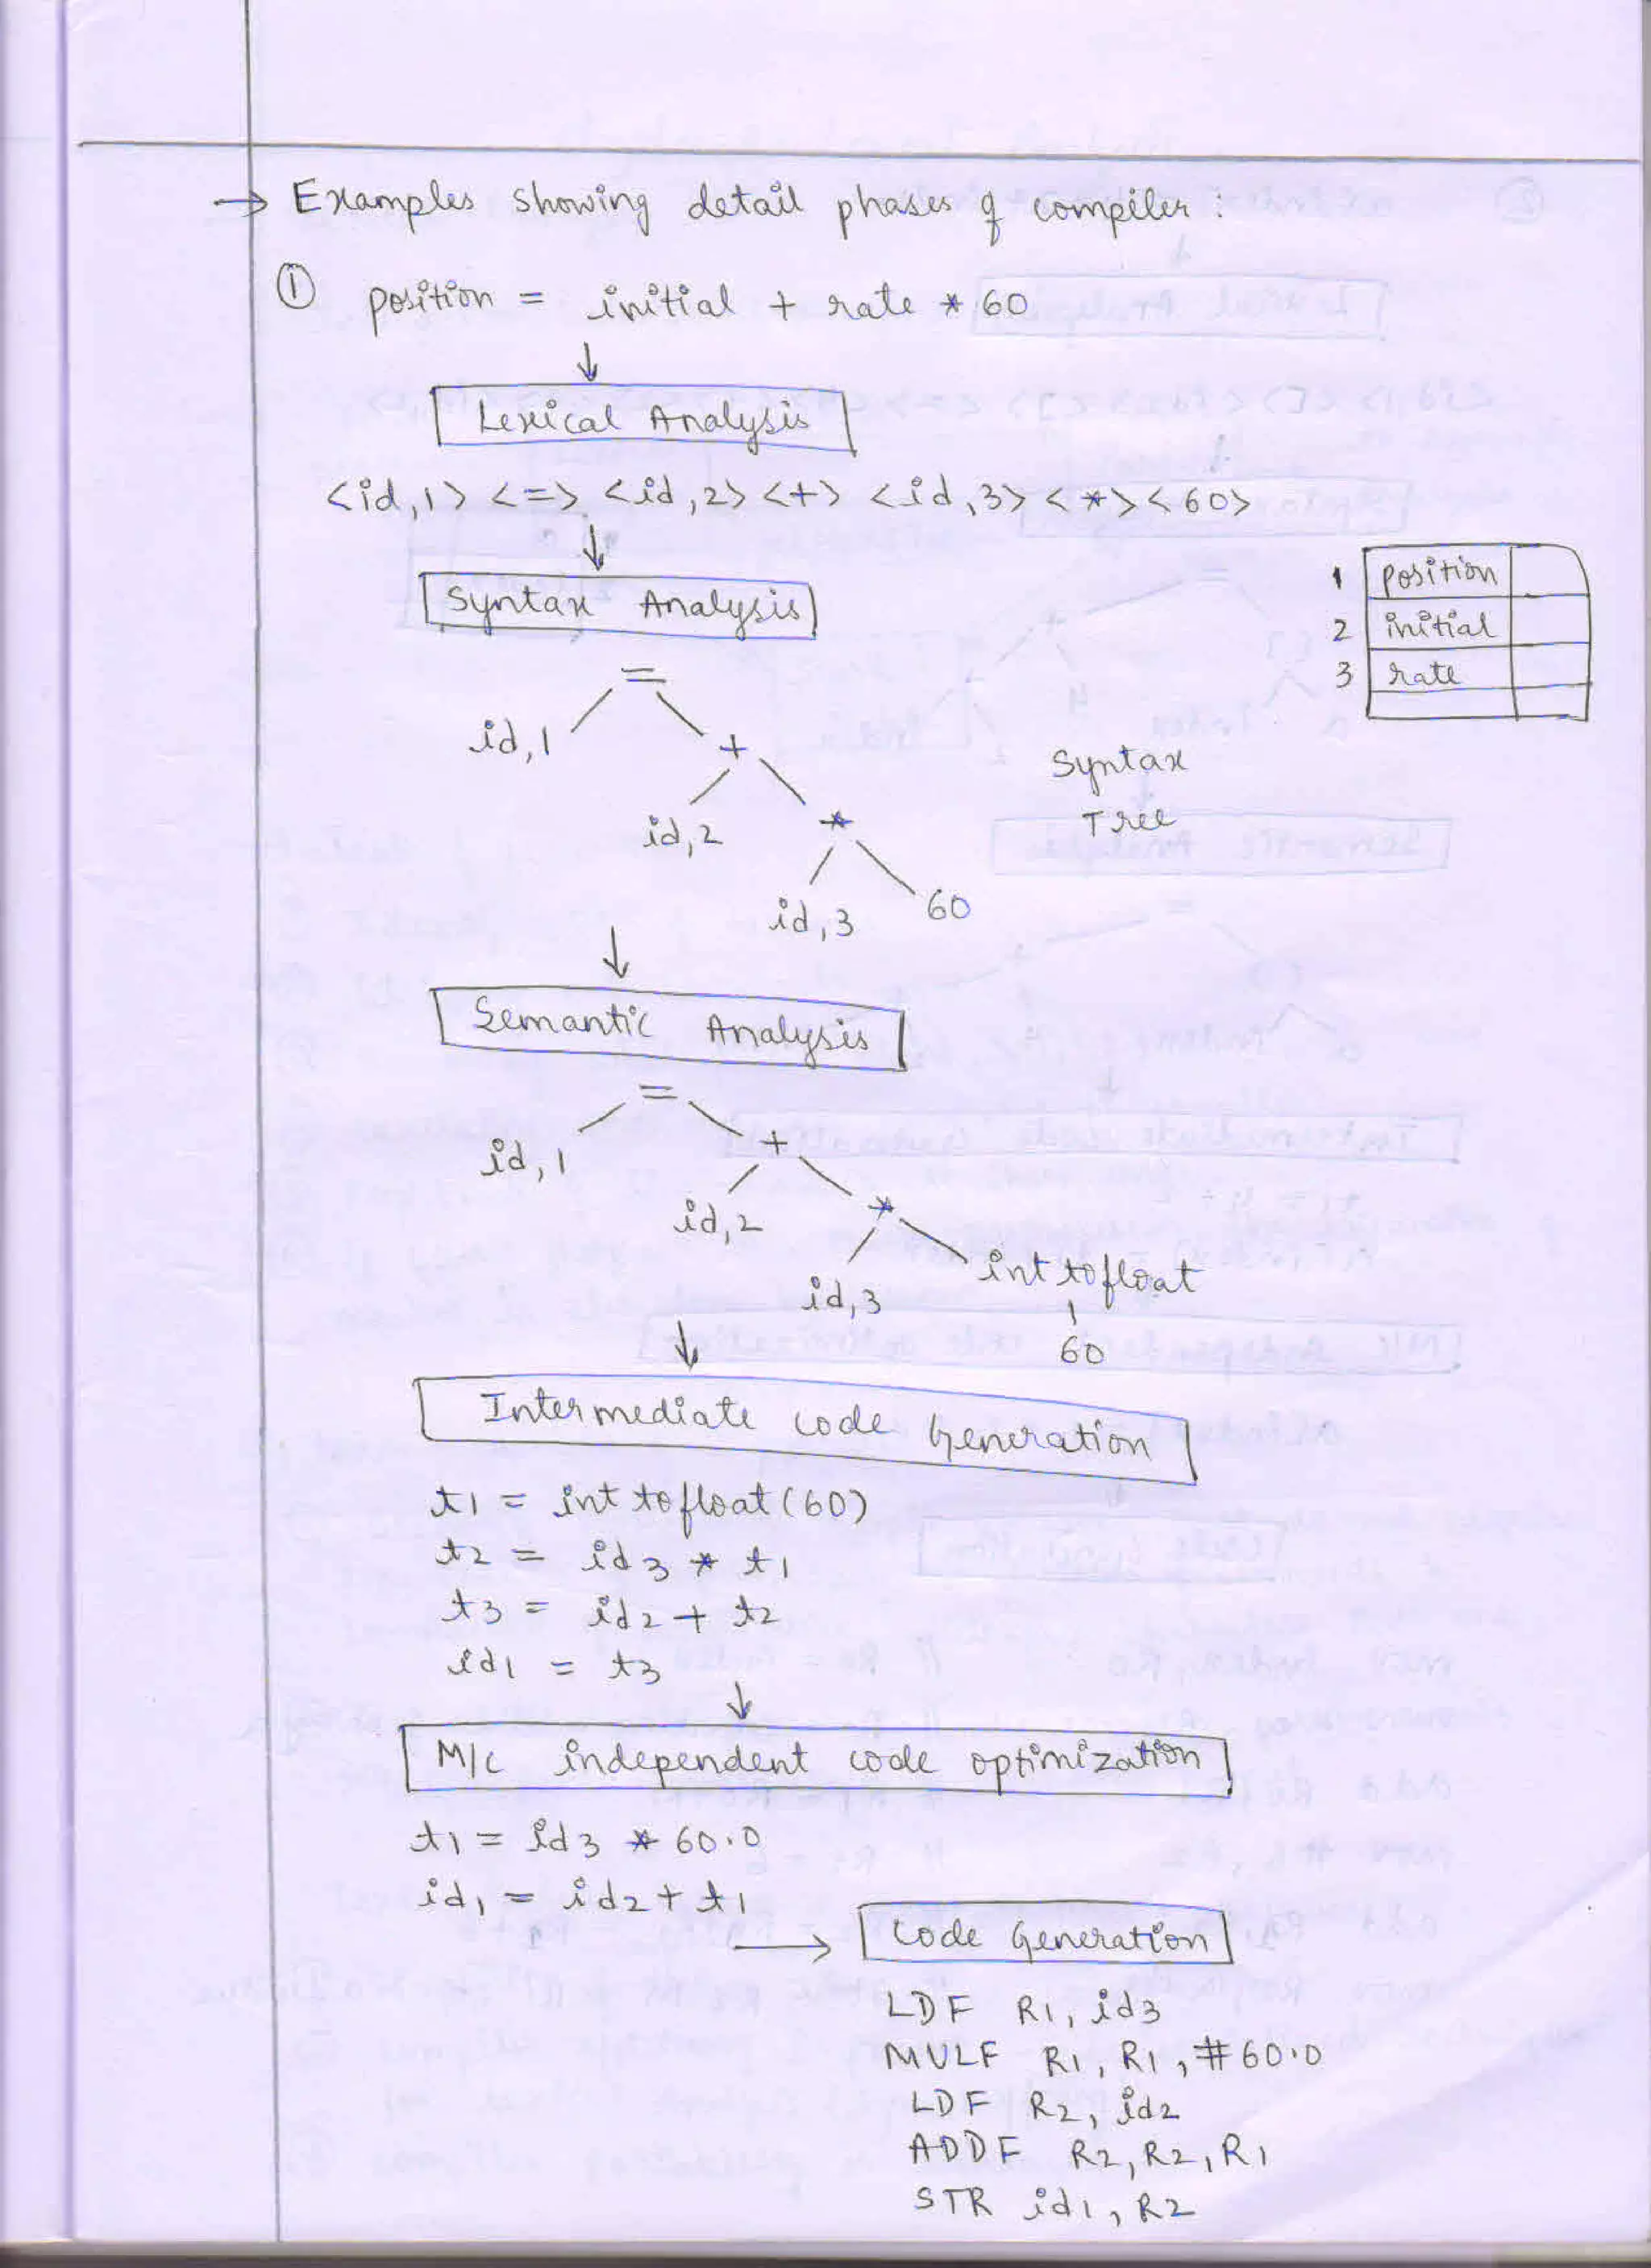 → Examples showing detail phases of compiler :
① position = initial + rate * 60
↓
Lexical Analysis
<id,1> <=> <id,2> <+> <id,3> <*> <60>
↓
Syntax Analysis
1 position
2 initial
3 rate
=
id,1 +
id,2 *
id,3 60
Syntax
Tree
↓
Semantic Analysis
=
id,1 +
id,2 *
id,3 inttofloat
60
↓
Intermediate code Generation
t1 = inttofloat(60)
t2 = id3 * t1
t3 = id2 + t2
id1 = t3
↓
M/c independent code optimization
t1 = id3 * 60.0
id1 = id2 + t1
→ Code Generation
LDF R1, id3
MULF R1, R1, #60.0
LDF R2, id2
ADDF R2, R2, R1
STR id1, R2